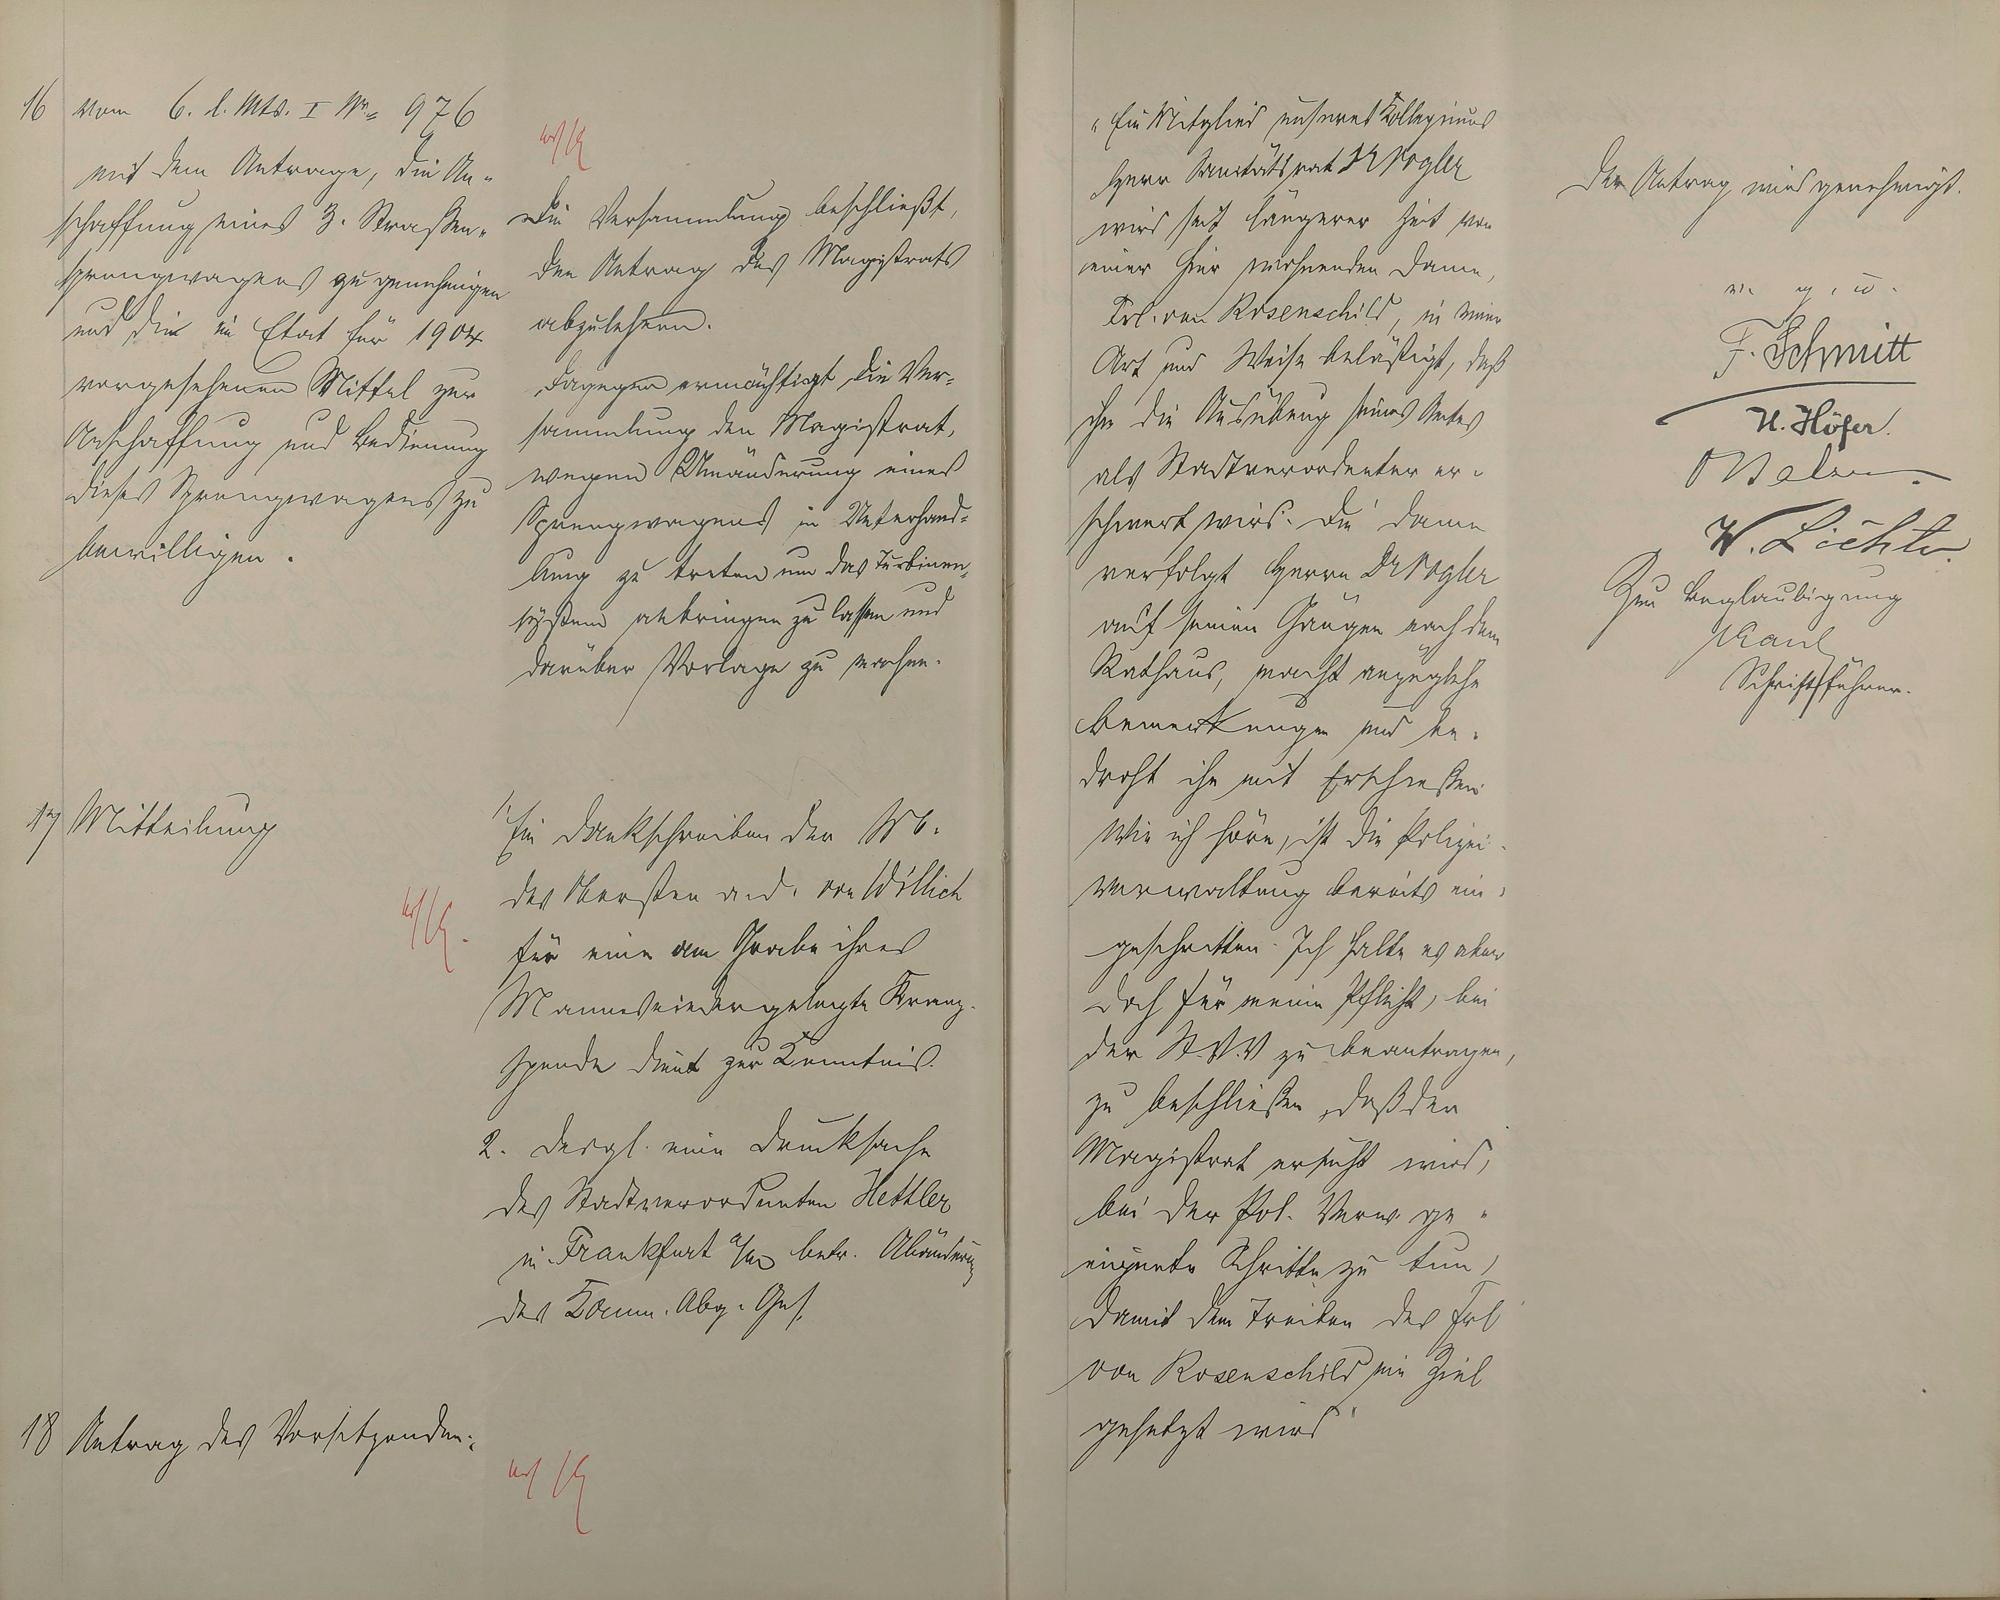 16 vom 6. l. Mts. I Nr. 976
mit dem Antrage, die An-
schaffung eines 3. Straßen-
sprengwagens zu genehmigen
und die im Etat für 1904
vorgesehenen Mittel zur
Anschaffung und Bedienung
dieses Sprengwagens zu
bewilligen.
Die Versammlung beschließt,
den Antrag des Magistrats
abzulehnen.
Dagegen ermächtigt die Ver-
sammlung den Magistrat,
wegen Umänderung eines
Sprengwagens in Unterhand-
lung zu treten um das Turbinen-
system anbringen zu lassen und
darüber Vorlage zu machen.
17 Mitteilung
1. Ein Dankschreiben der Ww.
des Obersten a. D. von Wöllich
für eine am Grabe ihres
Mannes niedergelegte Kranz-
spende dient zur Kenntnis.
2. desgl. eine Drucksache
des Stadtverordneten Hettler
in Frankfurt a/M betr. Abänderung
des Komm. Abg. Ges.
18 Antrag des Vorsitzenden:
"Ein Mitglied unseres Kollegiums
Herr Sanitätsrat Dr Vogler
wird seit längerer Zeit von
einer hier wohnenden Dame,
Frl. von Rosenschild, in einer
Art und Weise belästigt, daß
ihm die Ausübung seines Amtes
als Stadtverordneter er-
schwert wird. Die Dame
verfolgt Herrn Dr Vogler
auf seinen Gängen nach dem
Rathaus, macht anzügliche
Bemerkungen und be-
droht ihn mit Erschießen.
Wie ich höre, ist die Polizei-
verwaltung bereits ein-
geschritten. Ich halte es aber
doch für meine Pflicht, bei
der St.V.V zu beantragen,
zu beschließen, daß der
Magistrat ersucht wird,
bei der Pol. Verw. ge-
eignete Schritte zu tun,
damit dem Treiben des Frl
von Rosenschild ein Ziel
gesetzt wird"
Der Antrag wird genehmigt.
v. g. u.
F. Schmitt
H. Höfer.
W. Lichte
Zur Beglaubigung
Schriftführer.